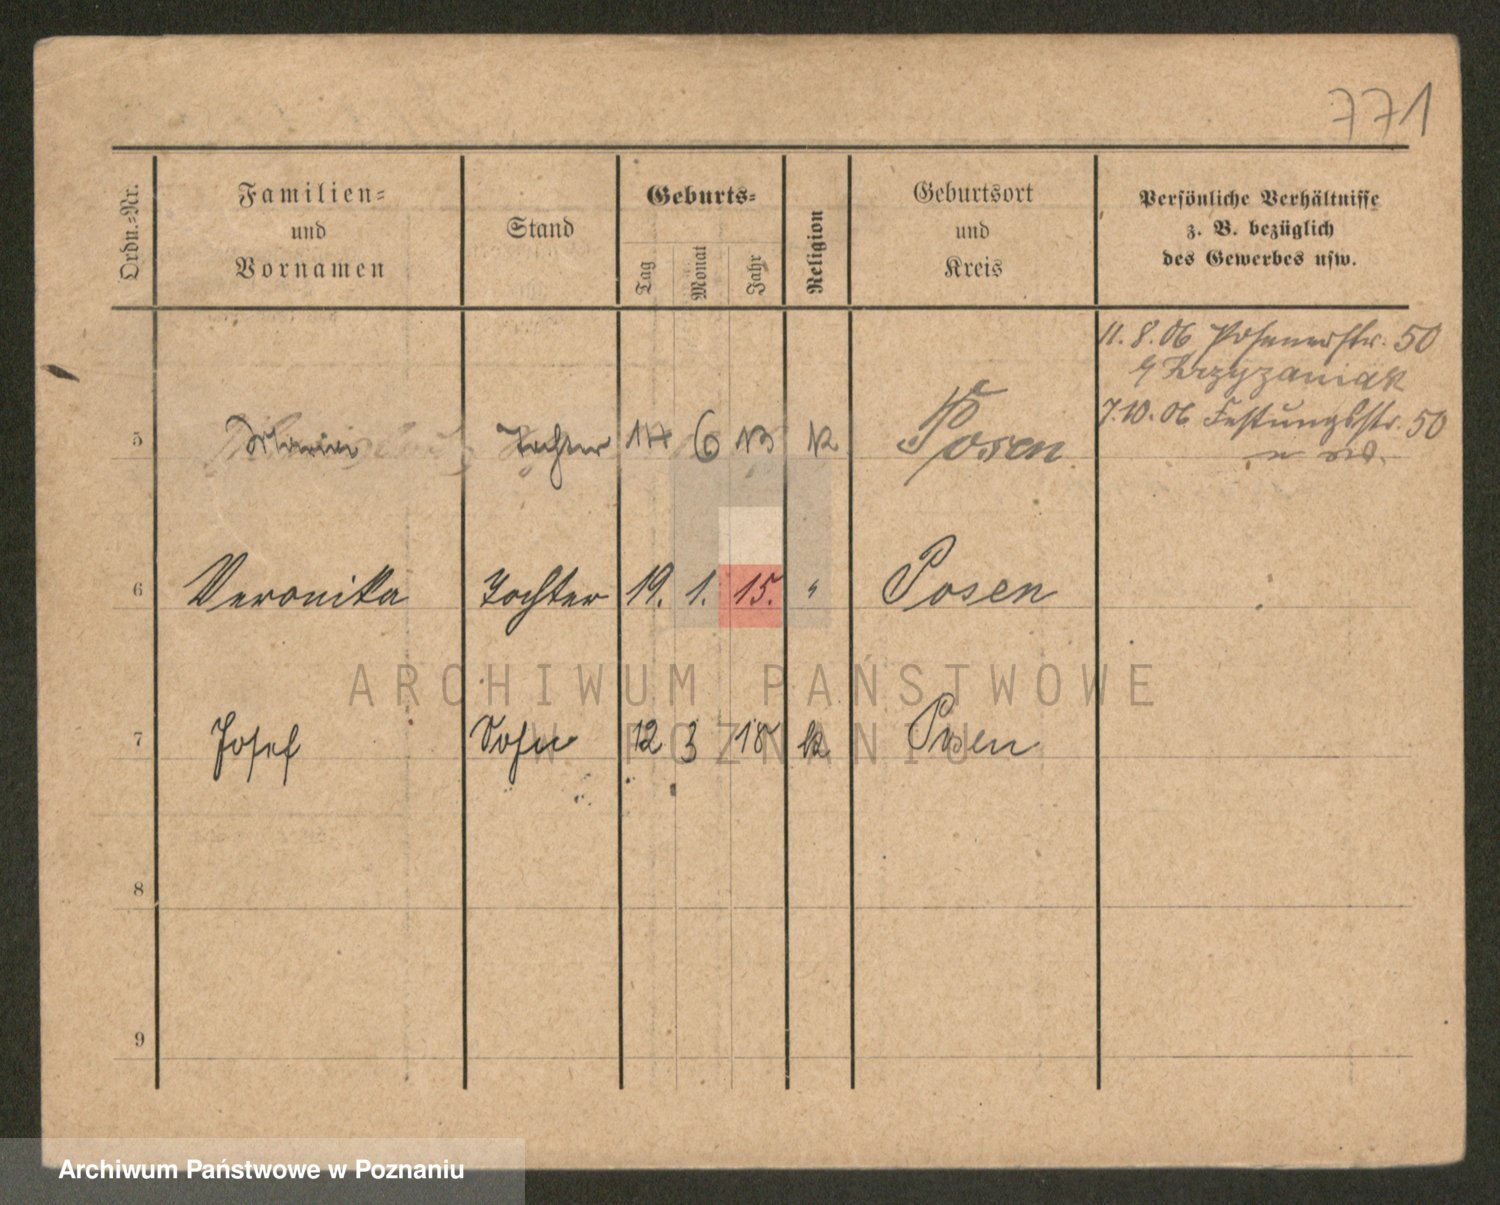 771
Ordn.-Nr.
Familien-
und
Vornamen
Stand
Geburts-
Tag
Monat
Jahr
Religion
Geburtsort
und
Kreis
Persönliche Verhältnisse
z. B. bezüglich
des Gewerbes usw.
11. 8. 06 Posenerstr. 50
Krzyzaniak
7.10.06 Festungsstr. 50
5 Tochter 6 13 K Posen
6 Veronika Tochter 19. 1. 15. " Posen
7 Josef Sohn 12 3 18 k Posen
8
9
ARCHIWUM PAŃSTWOWE
W POZNANIU
Archiwum Państwowe w Poznaniu